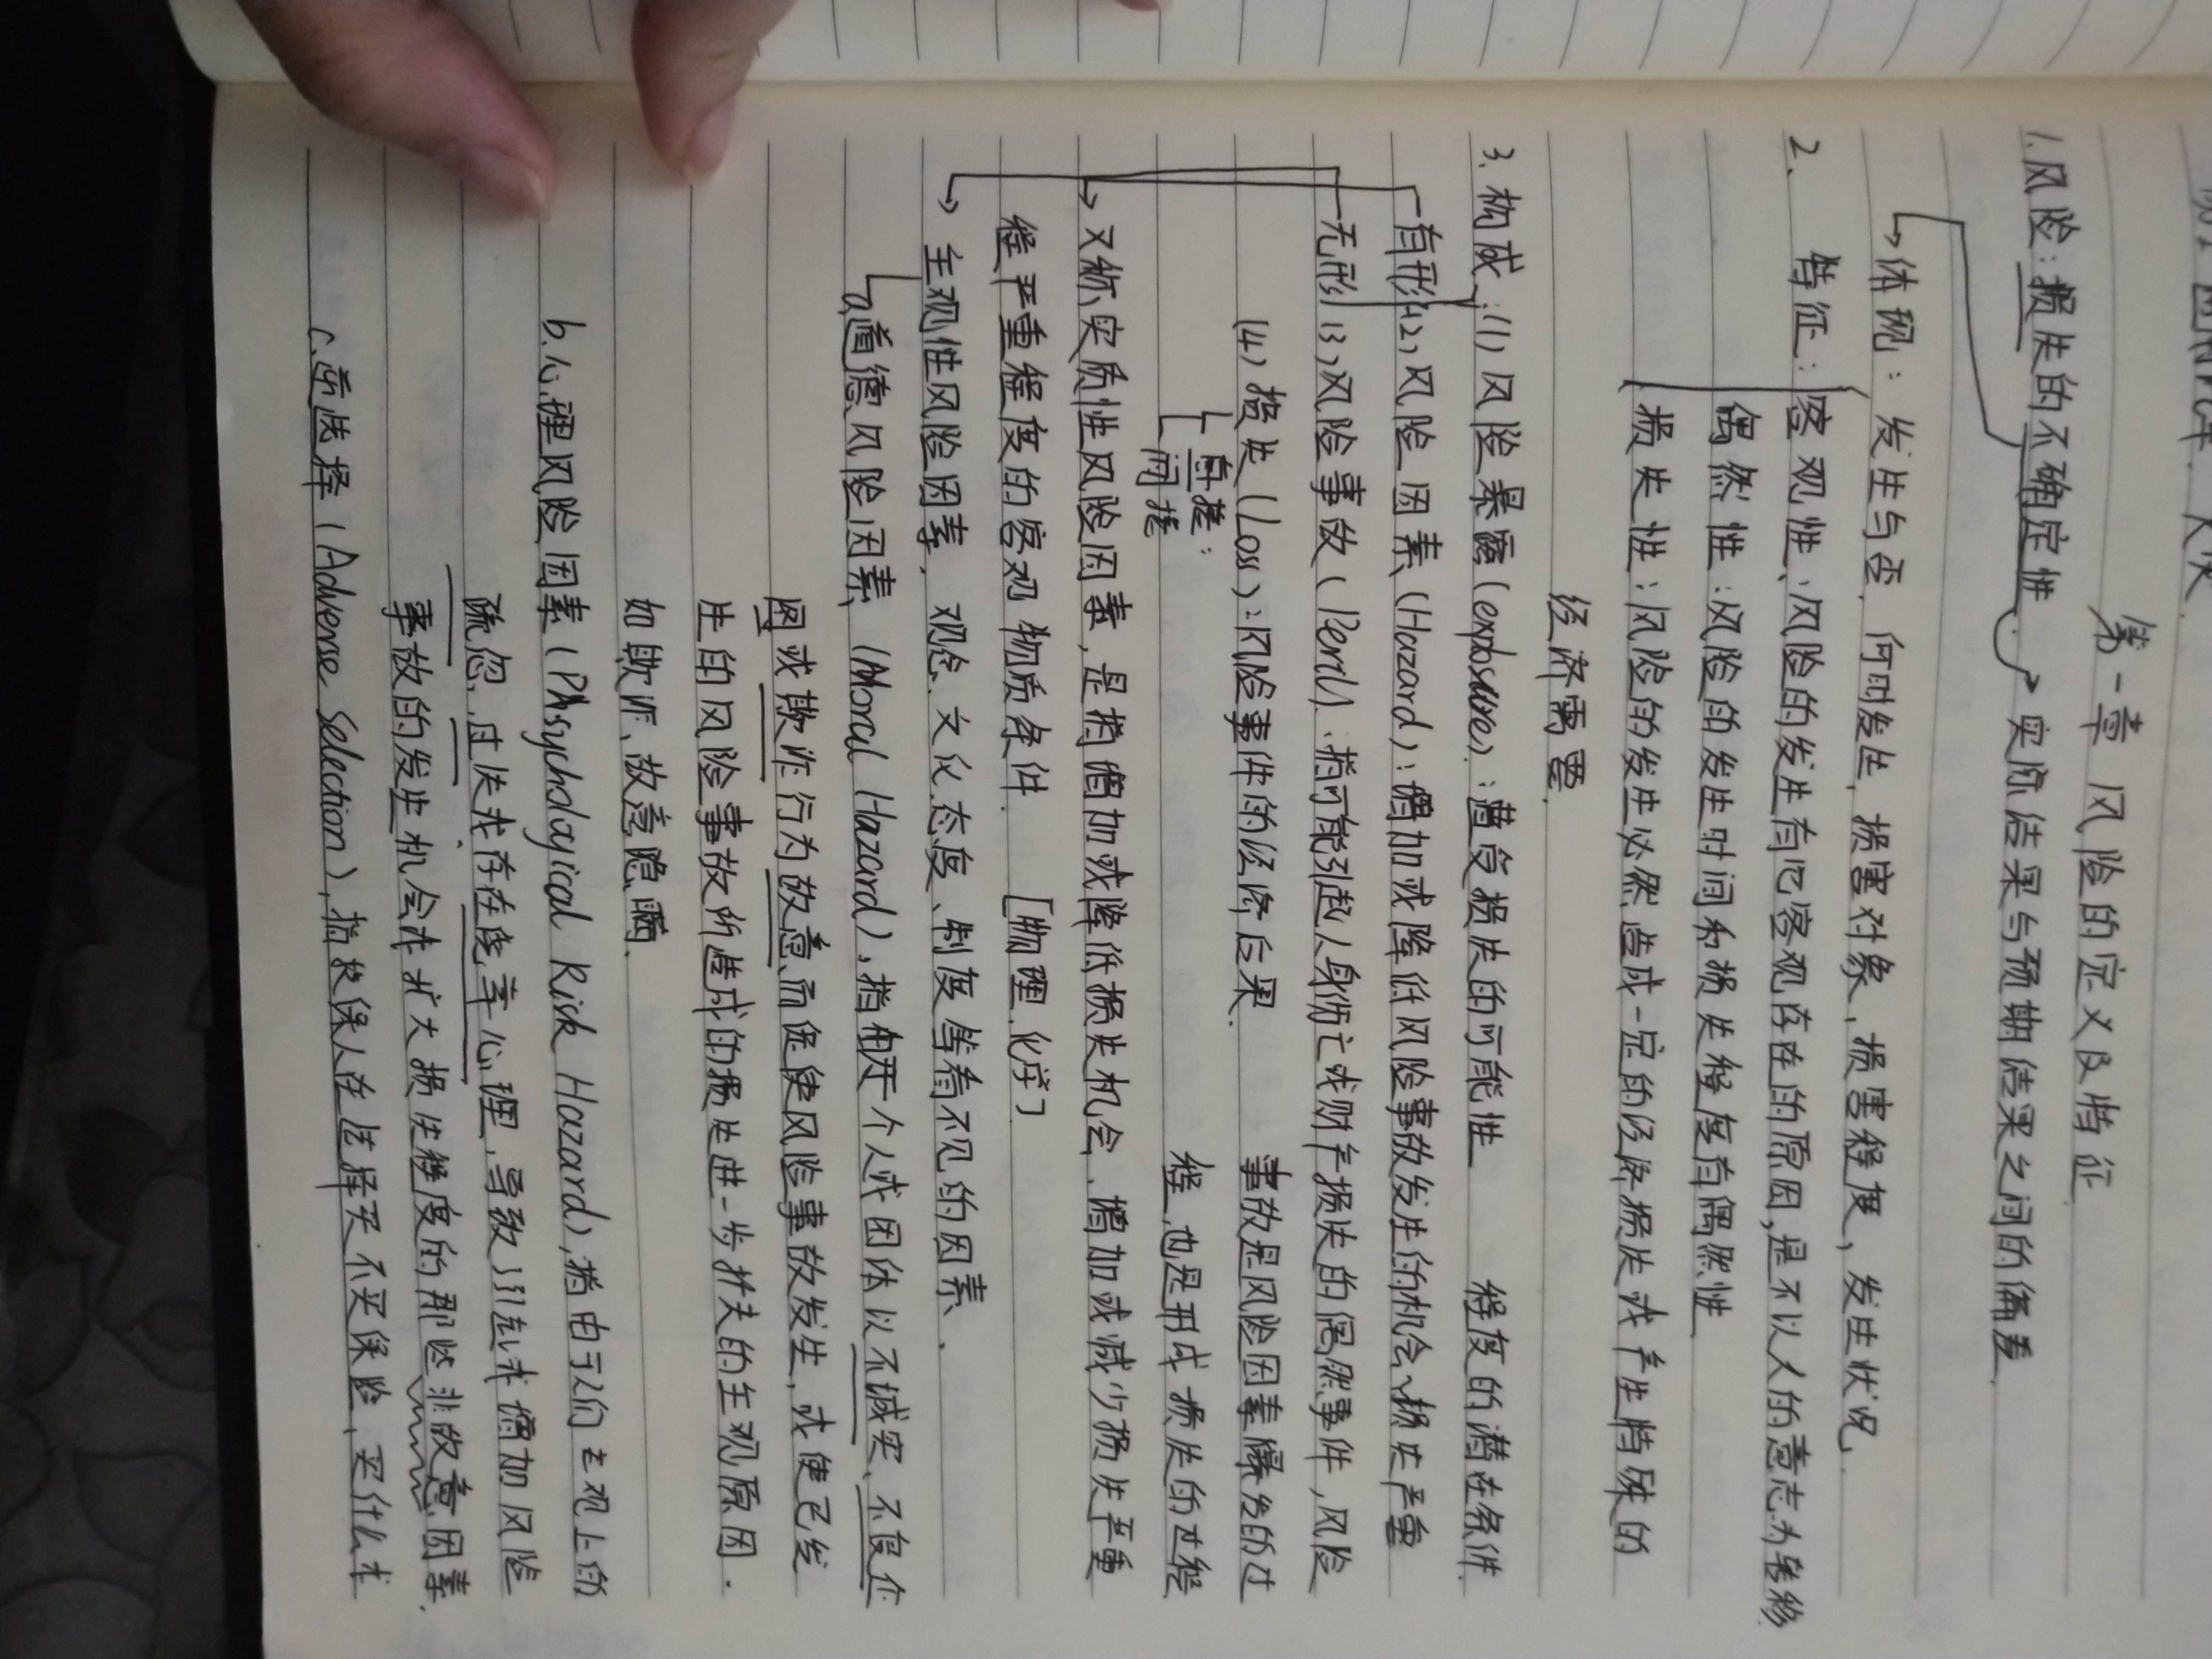 第一章 风险的定义及特征
1.风险:损失的不确定性. → 实际结果与预期结果之间的偏差.
→体现: 发生与否, 何时发生, 损害对象, 损害程度, 发生状况.
2、特征: 客观性:风险的发生有它客观存在的原因,是不以人的意志为转移
偶然性:风险的发生时间和损失程度有偶然性
损失性:风险的发生必然造成一定的经济损失或产生特殊的
经济需要.
3、构成:(1)风险暴露(exposure):遭受损失的可能性 程度的潜在条件
有形 (2)风险因素(Hazard):增加或降低风险事故发生的机会、损失严重
无形 (3)风险事故(Peril):指可能引起人身伤亡或财产损失的偶然事件,风险
(4)损失(Loss):风险事件的经济后果. 事故是风险因素爆发的过
直接: 程,也是形成损失的过程
间接
→又称实质性风险因素,是指增加或降低损失机会、增加或减少损失严重
程严重程度的客观物质条件. [物理,化学]
→主观性风险因素,观念、文化、态度、制度等看不见的因素、
a.道德风险因素(Moral Hazard),指由于个人或团体以不诚实、不良企
图或欺诈行为故意而促使风险事故发生,或使已发
生的风险事故所造成的损失进一步扩大的主观原因.
如欺诈、故意隐瞒.
b.心理风险因素(Phsychological Risk Hazard),指由于人们主观上的
疏忽、过失或存在侥幸心理,导致引起或增加风险
事故的发生机会或扩大损失程度的那些非故意因素.
c.逆选择(Adverse Selection),指投保人在选择买不买保险,买什么或